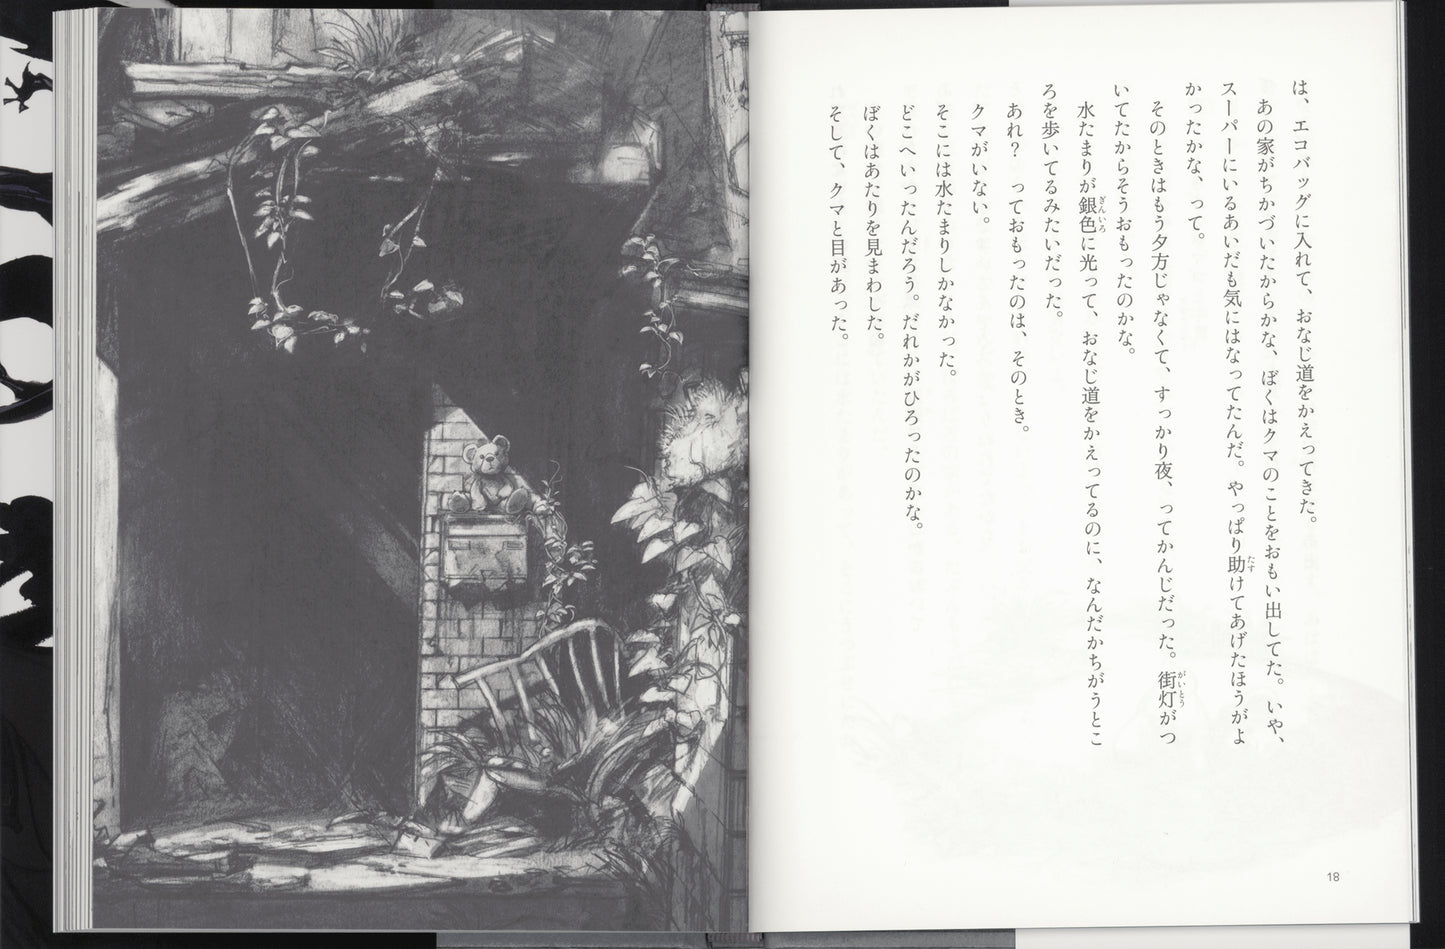 は、エコバッグに入れて、おなじ道をかえってきた。
あの家がちかづいたからかな、ぼくはクマのことをおもい出してた。いや、
スーパーにいるあいだも気にはなってたんだ。やっぱり助けてあげたほうがよ
かったかな、って。
そのときはもう夕方じゃなくて、すっかり夜、ってかんじだった。街灯がつ
いてたからそうおもったのかな。
水たまりが銀色に光って、おなじ道をかえってるのに、なんだかちがうとこ
ろを歩いてるみたいだった。
あれ？　っておもったのは、そのとき。
クマがいない。
そこには水たまりしかなかった。
どこへいったんだろう。だれかがひろったのかな。
ぼくはあたりを見まわした。
そして、クマと目があった。
18